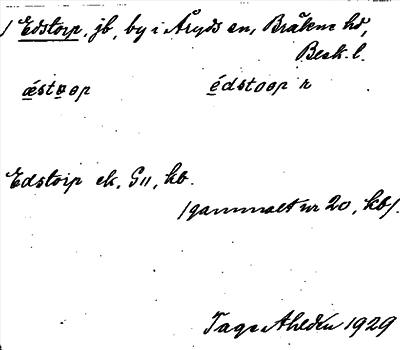 1 Edstorp, jb, by i Åryds sn, Bräkne hd,
Blek. l.
ǽstɷrp édstorp r
Edstorp ek, G11, kb.
/gammalt nr 20, kb/.
Tage Ahldén 1929